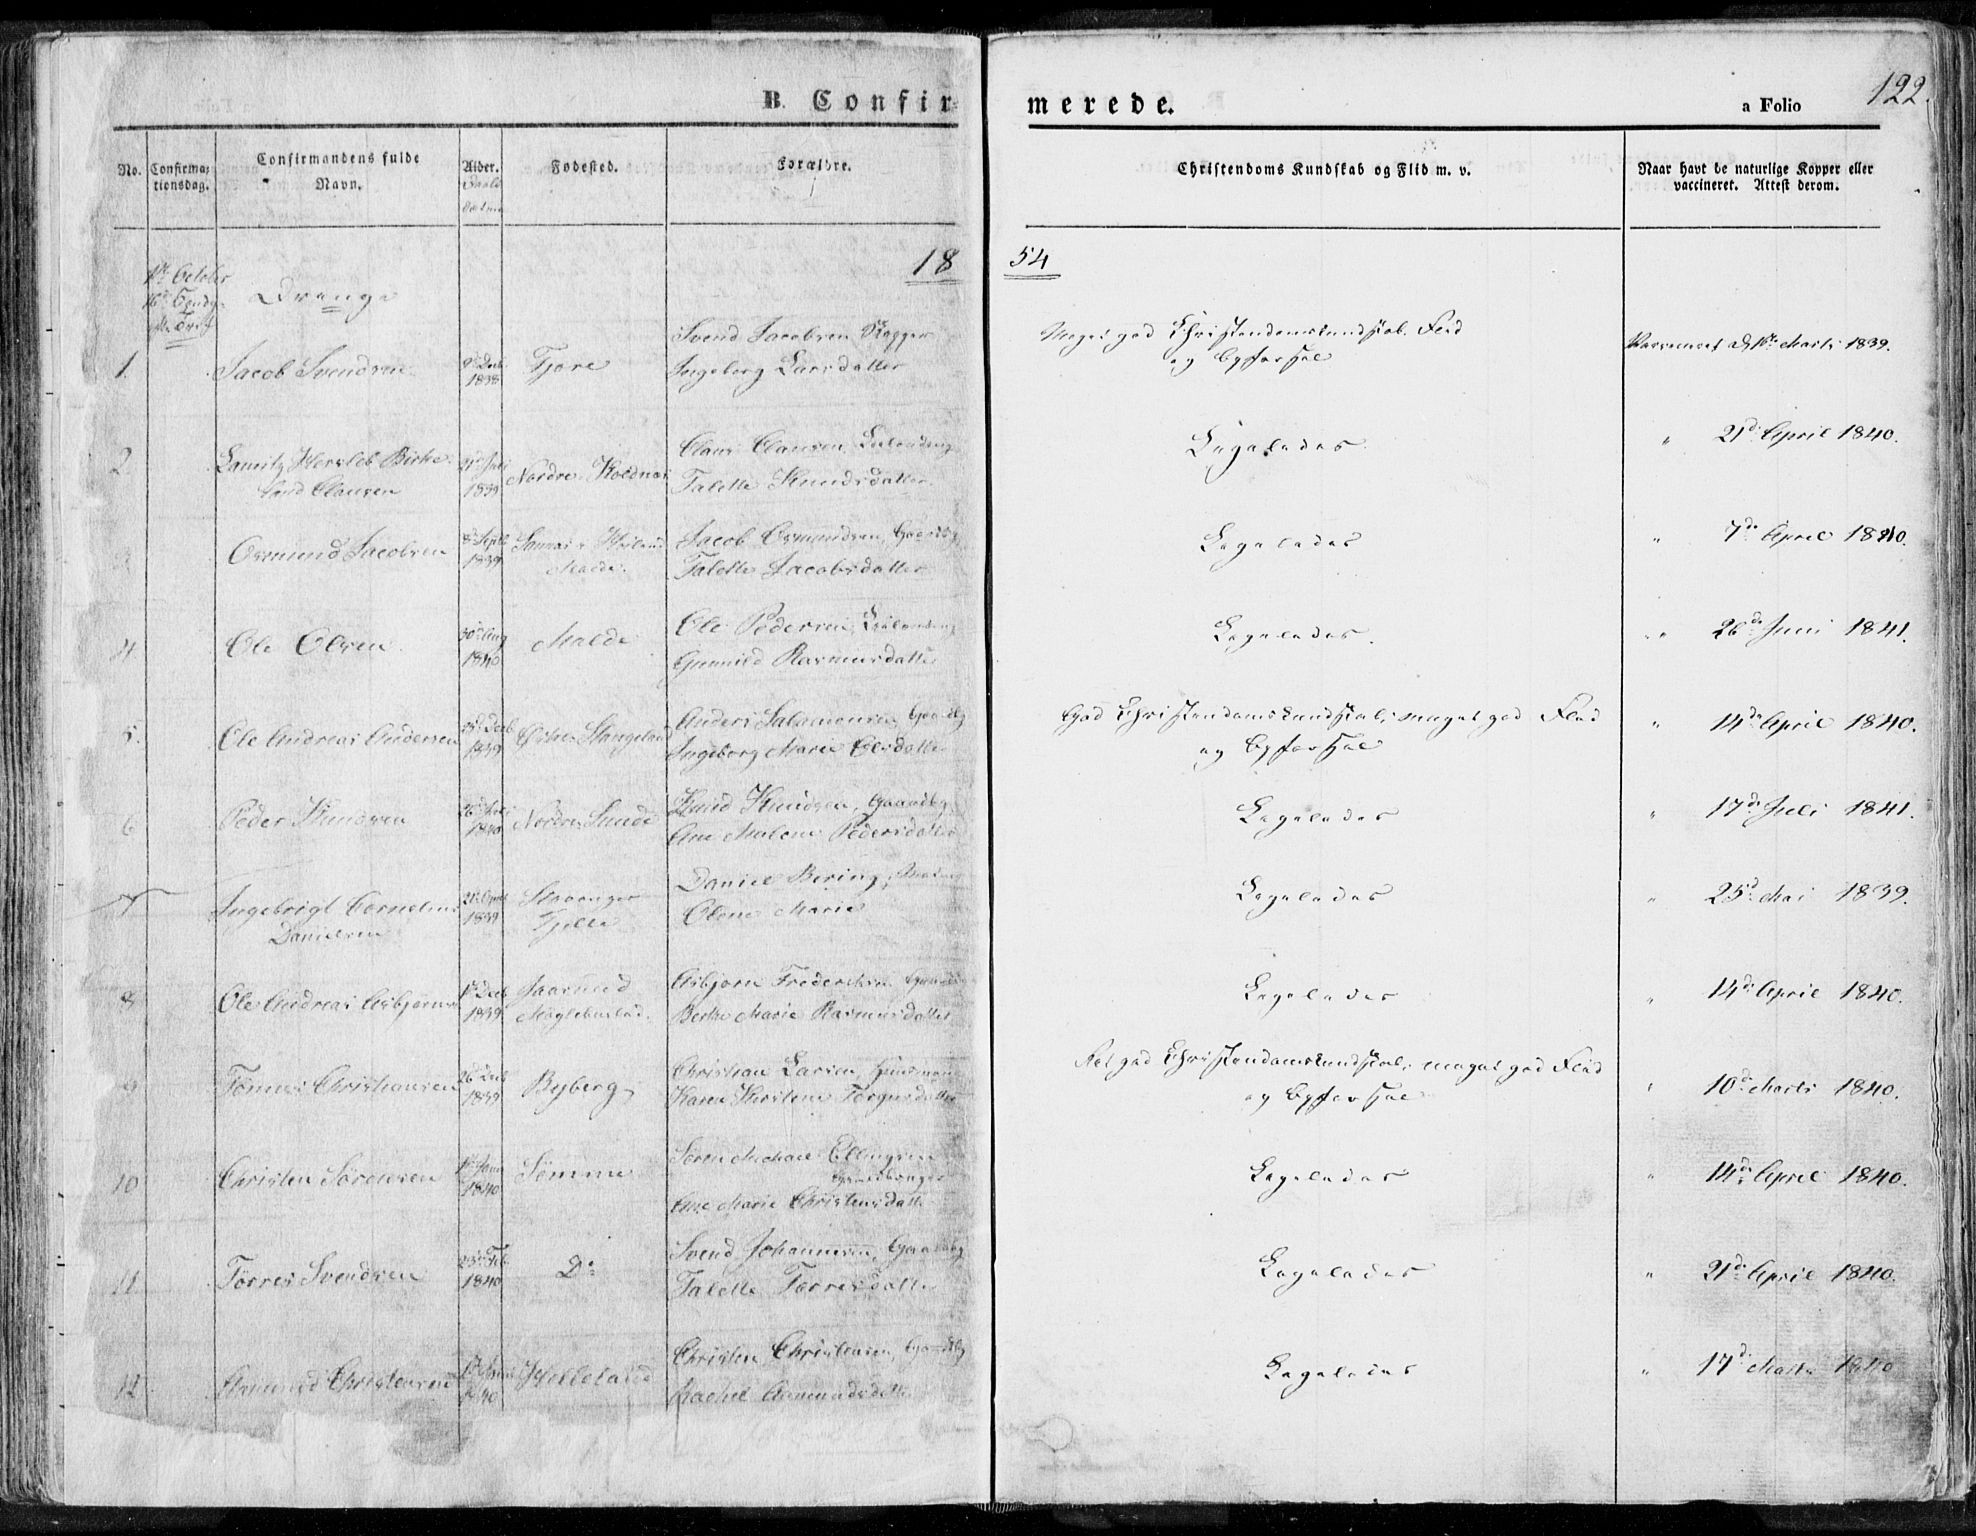 B. Confirmerede.
a Folio 122.
No.
Confirmationsdag.
Confirmandens fulde Navn.
Alder.
Fødested.
Forældre.
Christendoms Kundskab og Flid m. v.
Naar havt de naturlige Kopper eller vaccineret. Attest derom.
1854
1ste October
Drenge
1. Jacob Svendsen 1838 Tjore
Svend Jacobsen
Ingeborg Larsdatter
Meget god Christendomskundskab, Flid
og Opførsel
Marts 1839.
2 Lauritz Hersleb Birke-
land Clausen 21de Juli 1839 Nordre
Claus Clausen
Talette Knudsdatter
Ligeledes
" 21de April 1840.
3 Osmund Jacobsen 8de Septb 1839
Malde
Jacob Osmundsen, Gaardbr
Talette Jacobsdatter
Ligeledes
" 7de April 1840.
4 Ole Olsen 30te Aug 1840 Malde
Ole Pedersen
Gunnild Rasmusdatter
Ligeledes.
" 26de Juni 1841.
5. Ole Andreas Andersen Decb 1839 Østre Stangeland
Anders Salomonsen, Gaardbr
Ingeborg Marie Olsdatter
God Christendomskundskab, meget god Flid
og Opførsel
" 14de April 1840.
6 Peder Knudsen 26de Juli 1840 Nordre Sunde
Knud Knudsen, Gaardbr
Ane Malene Pedersdatter
Ligeledes
" 17de Juli 1841.
7 Ingebrigt Cornelius
Danielsen 1839 Stavanger
Tjelta
Daniel Bering,
Olene Marie
Ligeledes
" 25de Mai 1839.
8 Ole Andreas Asbjørnsen 1ste Decb 1839
Asbjørn Fredriksen
Berthe Marie Rasmusdatter
Ligeledes
" 14de April 1840.
9 Tønnes Christiansen 26de Decb 1839 Byberg
Christian Larsen, Huusmand
Karen Kirstine Torgersdatter
Ret god Christendomskundskab, meget god Flid
og Opførsel
" 10de Marts 1840.
10 Christen Sørensen 1840 Sømme
Søren Michael Ellingsen
Gaardbruger
Ane Marie Christensdatter
Ligeledes
" 14de April 1840.
11 Tørres Svendsen 23de Feb 1840 Do
Svend Johannesen, Gaardbr
Talette Tørresdatter
Ligeledes
" 21de April 1840.
12 Asmund Christensen 1840 Helleland
Christen Christensen, Gaardbr
Rachel Asmundsdatter
Ligeledes
" 17de Marts 1840